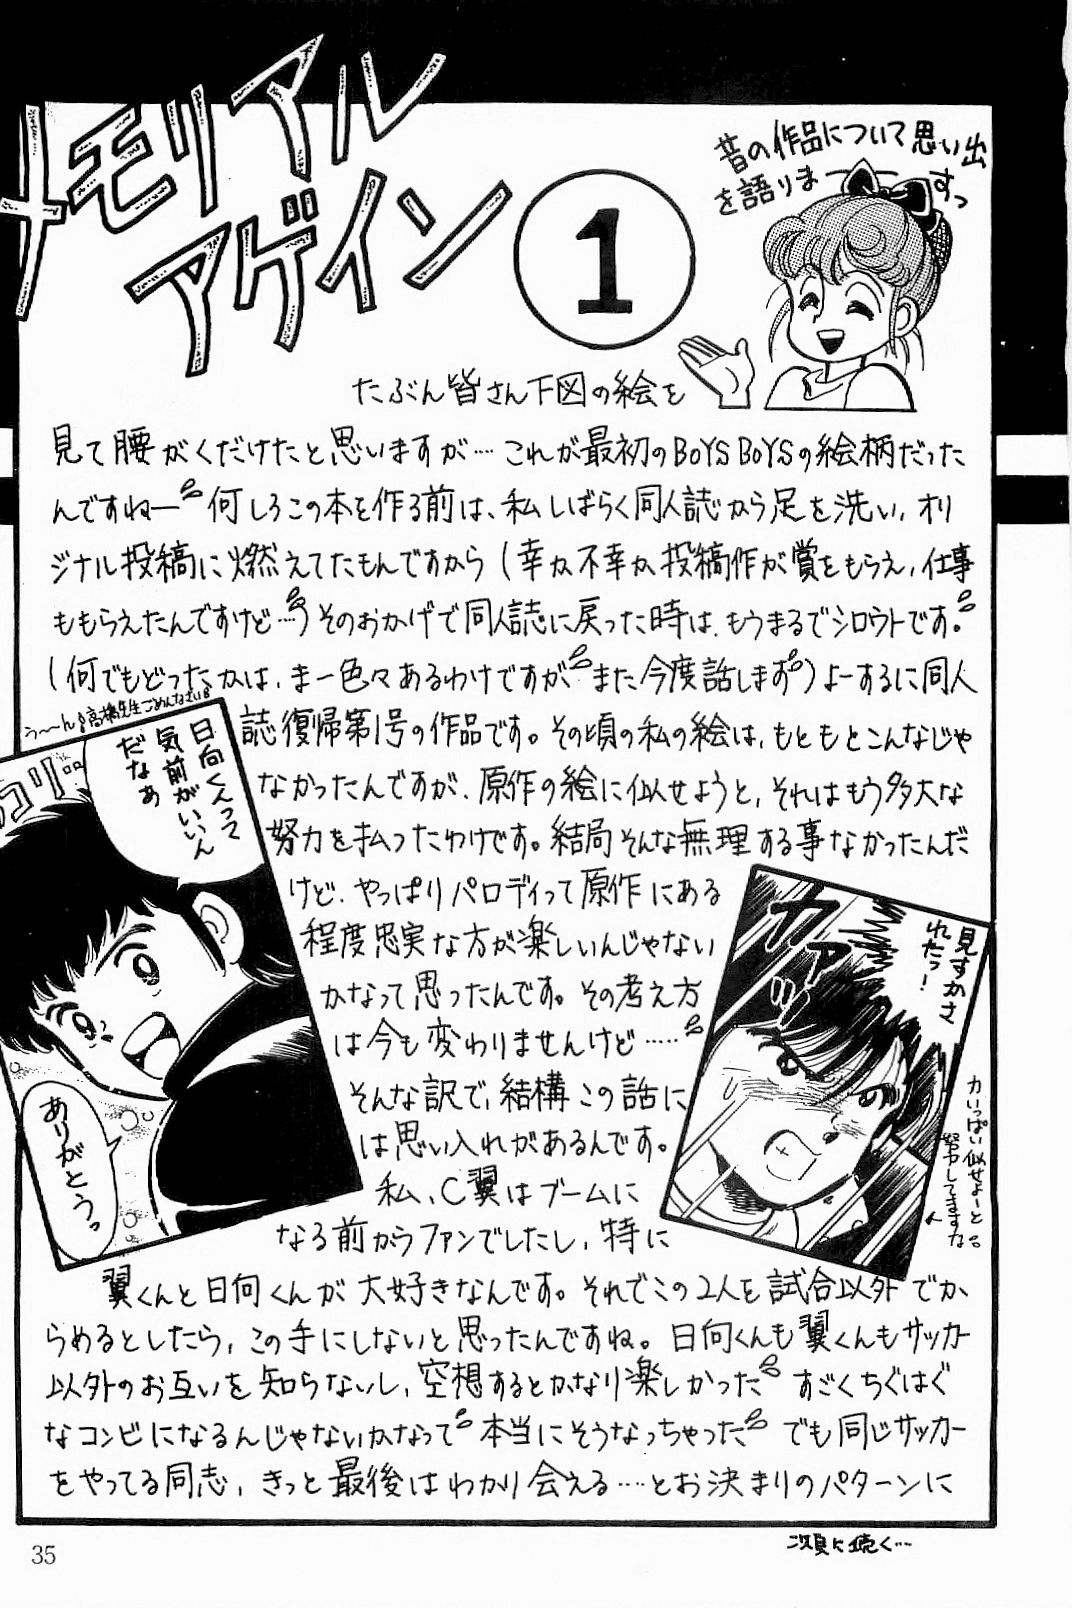 メモリアル
アゲイン
1
昔の作品について思い出
を語りま――すっ
たぶん皆さん下図の絵を
見て腰がくだけたと思いますが…これが最初のBOYS BOYSの絵柄だった
んですねー 何しろこの本を作る前は、私しばらく同人誌から足を洗い、オリ
ジナル投稿に燃えてたもんですから(幸か不幸か投稿作が賞をもらえ、仕事
ももらえたんですけど…)そのおかげで同人誌に戻った時は、もうまるでシロウトです。
(何でもどったかは、まー色々あるわけですが また今度話します)よーするに同人
誌復帰第1号の作品です。その頃の私の絵は、もともとこんなじゃ
なかったんですが、原作の絵に似せようと、それはもう多大な
努力を払ったわけです。結局そんな無理する事なかったんだ
けど、やっぱりパロディって原作にある
程度忠実な方が楽しいんじゃない
かなって思ったんです。その考え方
は今も変わりませんけど……
そんな訳で、結構この話に
は思い入れがあるんです。
私、C翼はブームに
なる前からファンでしたし、特に
翼くんと日向くんが大好きなんです。それでこの2人を試合以外でか
らめるとしたら、この手にしないと思ったんですね。日向くんも翼くんもサッカー
以外のお互いを知らないし、空想するとかなり楽しかった すごくちぐはぐ
なコンビになるんじゃないかなって 本当にそうなっちゃった でも同じサッカー
をやってる同志、きっと最後はわかり会える…とお決まりのパターンに
う〜〜ん 高橋先生ごめんなさい
コリ
日向くんって
気前がいいん
だなぁ
ありがとうっ
カアッ
見すかさ
れたっ!
力いっぱい似せよーと
努力してますな
次頁に続く…
35